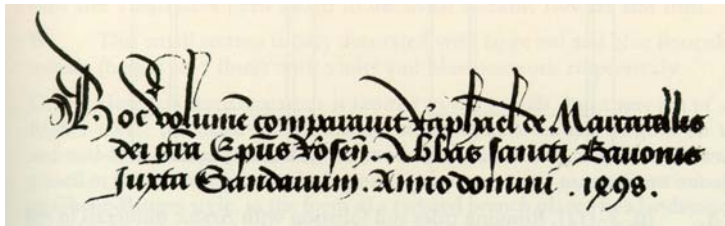 Hoc volumē comparavit Raphael de Marcatellis
dei gr̄a Ep̄us Rosen̄. Abbas sancti Bavonis
Juxta Gandavum. Anno domini . 1498.